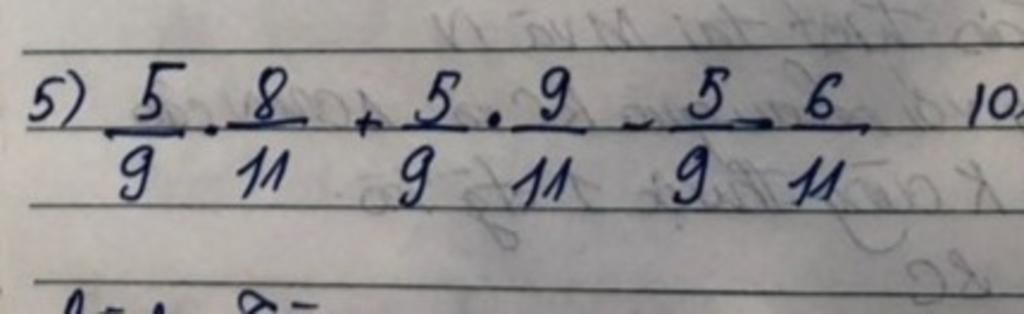 5) 5/9 . 8/11 + 5/9 . 9/11 - 5/9 - 6/11 10.